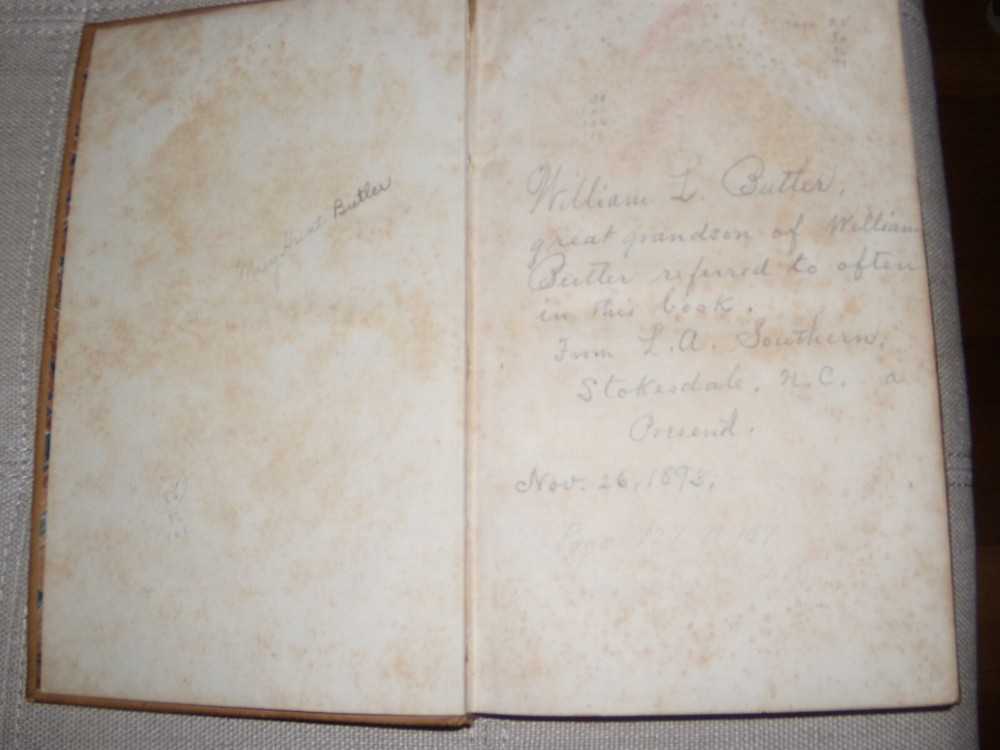 Mary Hunt Butler
William L. Butler,
great grandson of William
Butler referred to often
in this book.
From L.A. Southern,
Stokesdale, N.C. a
Present.
Nov. 26, 1893,